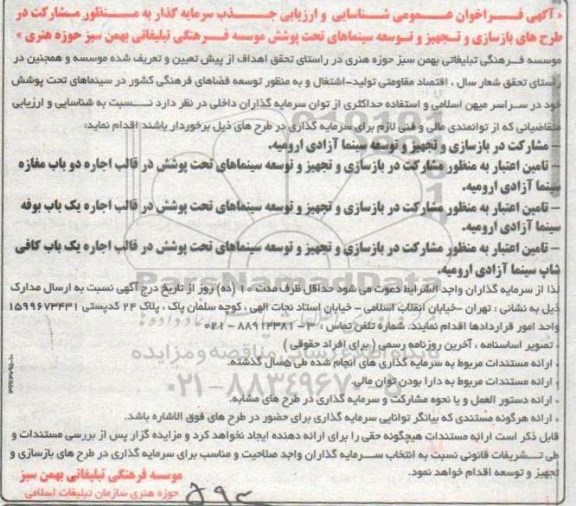 « آگهی فراخوان عمومی شناسایی و ارزیابی جذب سرمایه گذار به منظور مشارکت در
طرح های بازسازی و تجهیز و توسعه سینماهای تحت پوشش موسسه فرهنگی تبلیغاتی بهمن سبز حوزه هنری »
موسسه فرهنگی تبلیغاتی بهمن سبز حوزه هنری در راستای تحقق اهداف از پیش تعیین و تعریف شده موسسه و همچنین در
راستای تحقق شعار سال ، اقتصاد مقاومتی تولید-اشتغال و به منظور توسعه فضاهای فرهنگی کشور در سینماهای تحت پوشش
خود در سراسر میهن اسلامی و استفاده حداکثری از توان سرمایه گذاران داخلی در نظر دارد نسبت به شناسایی و ارزیابی
متقاضیانی که از توانمندی مالی و فنی لازم برای سرمایه گذاری در طرح های ذیل برخوردار باشند اقدام نماید:
– مشارکت در بازسازی و تجهیز و توسعه سینما آزادی ارومیه.
– تامین اعتبار به منظور مشارکت در بازسازی و تجهیز و توسعه سینماهای تحت پوشش در قالب اجاره دو باب مغازه
سینما آزادی ارومیه.
– تامین اعتبار به منظور مشارکت در بازسازی و تجهیز و توسعه سینماهای تحت پوشش در قالب اجاره یک باب بوفه
سینما آزادی ارومیه.
– تامین اعتبار به منظور مشارکت در بازسازی و تجهیز و توسعه سینماهای تحت پوشش در قالب اجاره یک باب کافی
شاپ سینما آزادی ارومیه.
لذا از سرمایه گذاران واجد الشرایط دعوت می شود حداقل ظرف مدت ۱۰ (ده) روز از تاریخ درج آگهی نسبت به ارسال مدارک
ذیل به نشانی : تهران -خیابان انقلاب اسلامی - خیابان استاد نجات الهی ، کوچه سلمان پاک ، پلاک ۲۴ کدپستی ۱۵۹۹۶۷۳۴۳۱
واحد امور قراردادها اقدام نمایند. شماره تلفن تماس : ۳-۸۸۹۱۲۳۸۱-۰۲۱
، تصویر اساسنامه ، آخرین روزنامه رسمی ( برای افراد حقوقی )
، ارائه مستندات مربوط به سرمایه گذاری های انجام شده طی ۵سال گذشته.
، ارائه مستندات مربوط به دارا بودن توان مالی.
، ارائه دستور العمل و یا نحوه مشارکت و سرمایه گذاری در طرح های مشابه.
، ارائه هرگونه مستندی که بیانگر توانایی سرمایه گذاری برای حضور در طرح های فوق الاشاره باشد.
قابل ذکر است ارائه مستندات هیچگونه حقی را برای ارائه دهنده ایجاد نخواهد کرد و مزایده گزار پس از بررسی مستندات و
طی تشریفات قانونی نسبت به انتخاب سرمایه گذاران واجد صلاحیت و مناسب برای سرمایه گذاری در طرح های بازسازی و
تجهیز و توسعه اقدام خواهد نمود.
موسسه فرهنگی تبلیغاتی بهمن سبز
حوزه هنری سازمان تبلیغات اسلامی
ParsNamadData
پایگاه اطلاع رسانی مناقصه و مزایده